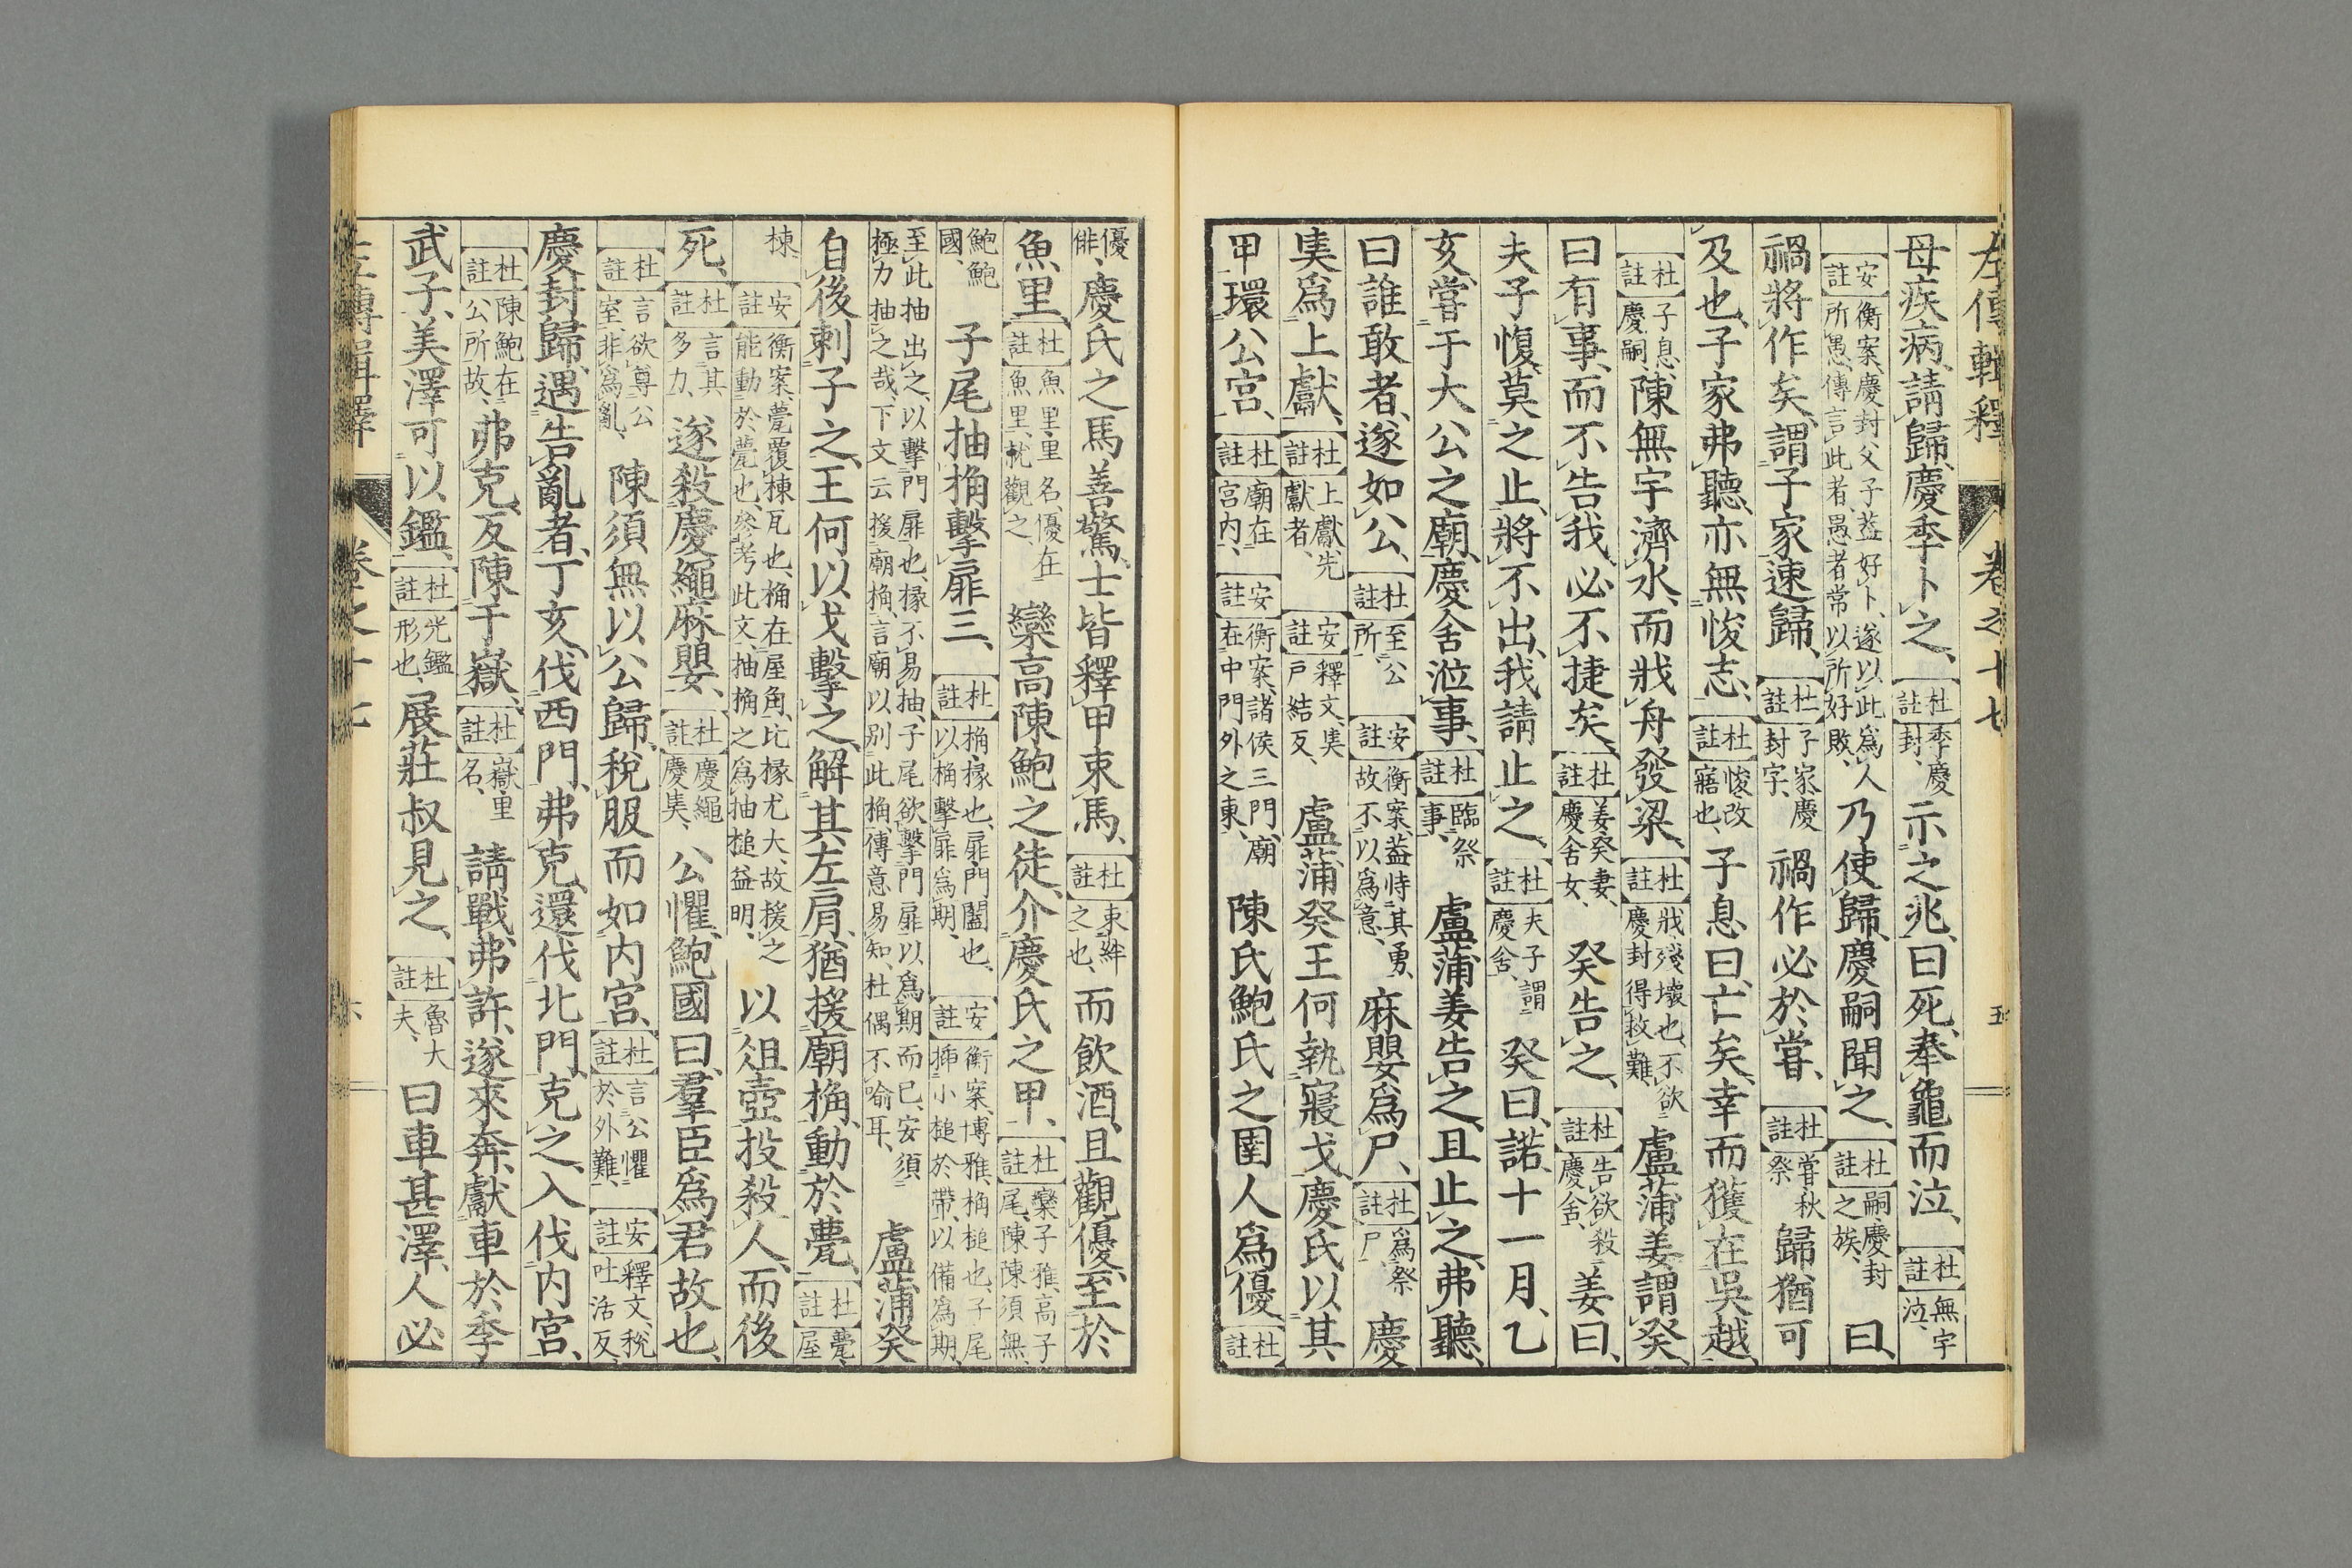 左傳輯釋 卷之十七 五
母疾病、請歸、慶季卜之、杜註季慶封、示之兆、曰死、奉龜而泣、杜註無宇泣、
安註衡案、慶封父子、葢好卜、遂以此爲人所愚、傳言此者、愚者常以所好敗、乃使歸、慶嗣聞之、杜註嗣、慶封之族、曰、
禍將作矣、謂子家速歸、杜註子家、慶封字、禍作必於嘗、杜註嘗、秋祭、歸猶可
及也、子家弗聽、亦無悛志、杜註悛、改寤也、子息曰、亡矣、幸而獲在吳越、
杜註子息、慶嗣、陳無宇濟水、而戕舟發梁、杜註戕、殘壞也、不欲慶封得救難、盧蒲姜謂癸
曰、有事、而不告我、必不捷矣、杜註姜、癸妻、慶舍女、癸告之、杜註告欲殺慶舍、姜曰、
夫子愎、莫之止、將不出、我請止之、杜註夫子謂慶舍、癸曰、諾、十一月、乙
亥、嘗于大公之廟、慶舍涖事、杜註臨祭事、盧蒲姜告之、且止之、弗聽、
曰誰敢者、遂如公、杜註至公所、安註衡案、葢恃其勇、故不以爲意、麻嬰爲尸、杜註爲祭尸、慶
奊爲上獻、杜註上獻、先獻者、安註釋文、奊戶結反、盧蒲癸王何執寢戈、慶氏以其
甲環公宮、杜註廟在宮内、安註衡案、諸侯三門、廟在中門外之東、陳氏鮑氏之圉人爲優、杜註
優俳、慶氏之馬善驚、士皆釋甲束馬、杜註束、絆之也、而飲酒、且觀優、至於
魚里、杜註魚里、里名、優在魚里、就觀之、欒高陳鮑之徒、介慶氏之甲、杜註欒、子雅、高、子尾、陳、陳須無、
鮑、鮑國、子尾抽桷、擊扉三、杜註桷、椽也、扉、門闔也、以桷擊扉爲期、安註衡案、博雅、桷槌也、子尾揷小槌於帶、以備爲期、
至此抽出之、以擊門扉也、椽不易抽、子尾欲擊門扉以爲期而已、安須極力抽之哉、下文云援廟桷、言廟以別此桷、傳意易知、杜偶不喩耳、盧蒲癸
自後刺子之、王何以戈擊之、解其左肩、猶援廟桷、動於甍、杜註甍、屋
棟、安註衡案、甍覆棟瓦也、桷在屋角、比椽尤大、故援之能動於甍也、參考此文、抽桷之爲抽槌益明、以俎壺投殺人、而後
死、杜註言其多力、遂殺慶繩麻嬰、杜註慶繩、慶奊、公懼、鮑國曰、羣臣爲君故也、
杜註言欲尊公室、非爲亂、陳須無以公歸、稅服而如内宮、杜註言公懼於外難、安註釋文、稅吐活反、
慶封歸、遇告亂者、丁亥、伐西門、弗克、還伐北門、克之、入伐内宮、
杜註陳鮑在公所故、弗克、反陳于嶽、杜註嶽、里名、請戰、弗許、遂來奔、獻車於季
武子、美澤可以鑑、杜註光鑑形也、展莊叔見之、杜註魯大夫、曰車甚澤、人必
左傳輯釋 卷之十七 六